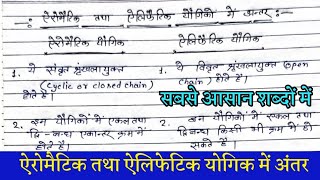 ऐरोमैटिक तथा ऐलिफैटिक यौगिकों में अन्तर
ऐरोमैटिक यौगिक
ऐलिफैटिक यौगिक
1. ये संवृत श्रृंखलायुक्त
(Cyclic or closed chain)
होते हैं।
1. ये विवृत श्रृंखलायुक्त (open
chain) होते हैं।
सबसे आसान शब्दों में
2. इन यौगिकों में एकल तथा
द्वि-बन्ध एकान्तर क्रम में
होते हैं।
2. इन यौगिकों में एकल तथा
द्विबन्ध किसी भी क्रम में हो
सकते हैं।
ऐरोमैटिक तथा ऐलिफेटिक योगिक में अंतर